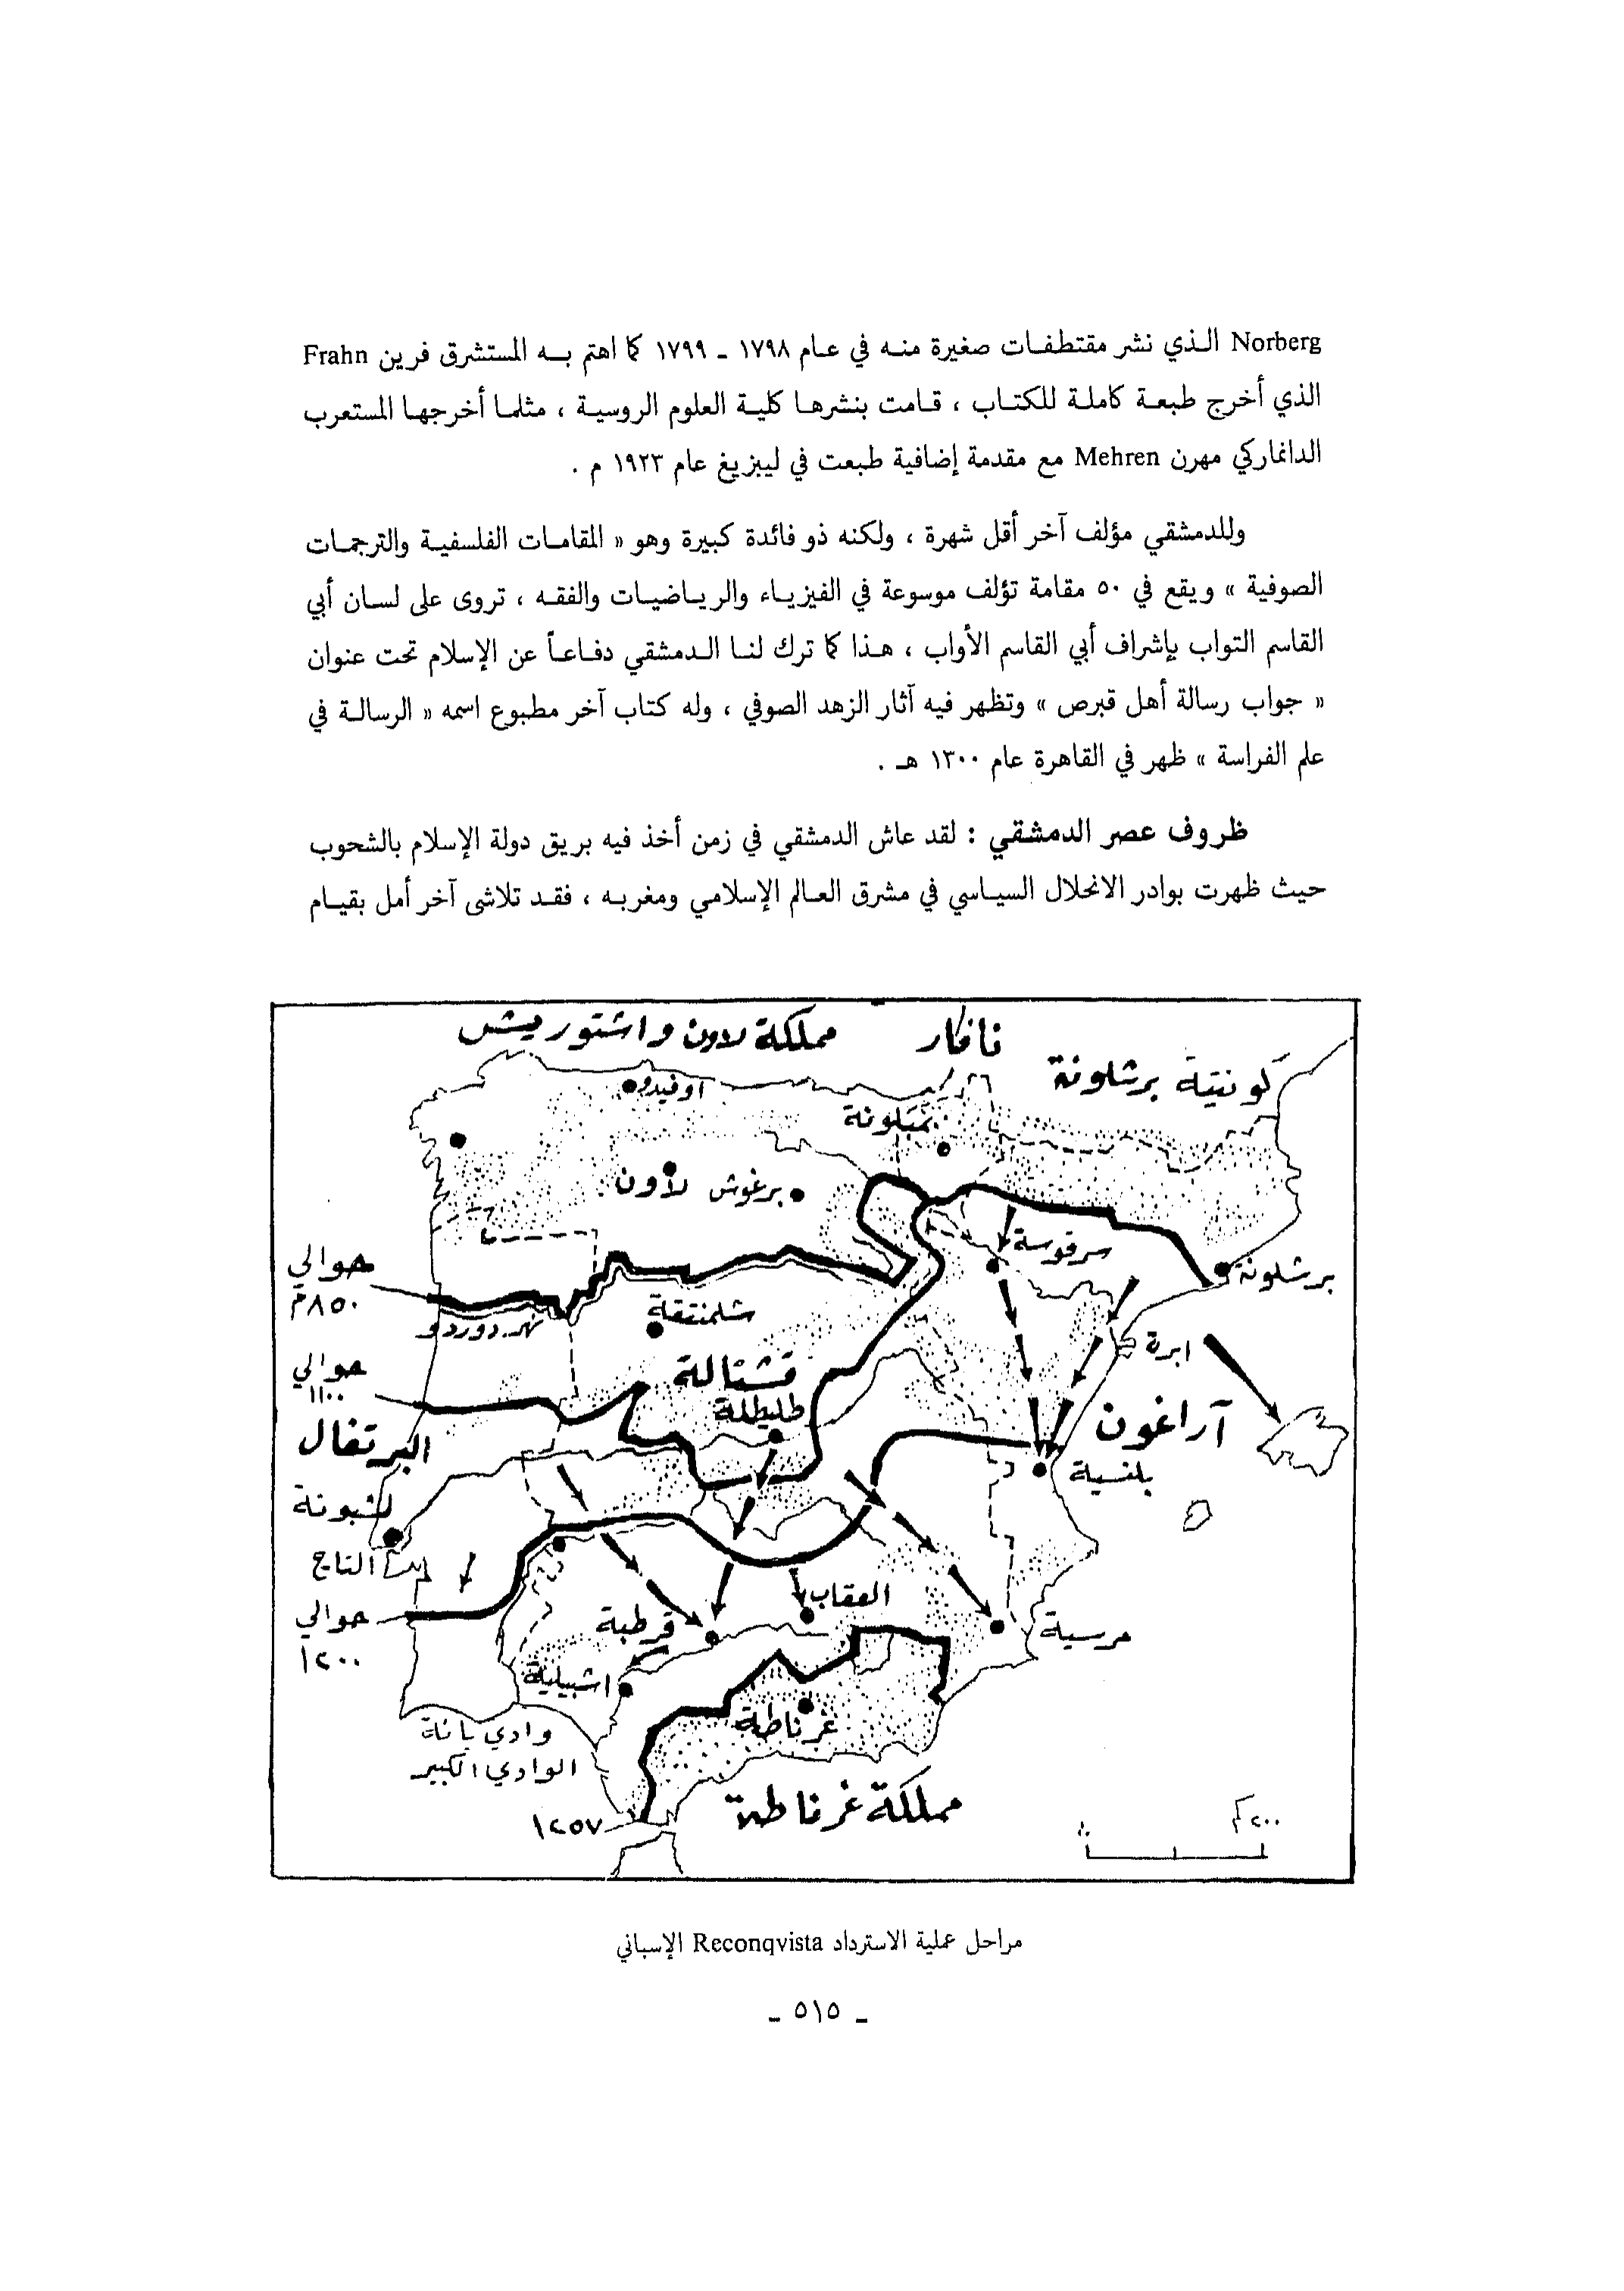 Norberg الذي نشر مقتطفات صغيرة منه في عام ١٧٩٨ ـ ١٧٩٩ كما اهتم به المستشرق فرين Frahn
الذي أخرج طبعة كاملة للكتاب ، قامت بنشرها كلية العلوم الروسية ، مثلما أخرجها المستعرب
الدانماركي مهرن Mehren مع مقدمة إضافية طبعت في ليبزيغ عام ١٩٢٣ م .
وللدمشقي مؤلف آخر أقل شهرة ، ولكنه ذو فائدة كبيرة وهو « المقامات الفلسفية والترجمات
الصوفية » ويقع في ٥٠ مقامة تؤلف موسوعة في الفيزياء والرياضيات والفقه ، تروى على لسان أبي
القاسم التواب بإشراف أبي القاسم الأواب ، هذا كما ترك لنا الدمشقي دفاعاً عن الإسلام تحت عنوان
« جواب رسالة أهل قبرص » وتظهر فيه آثار الزهد الصوفي ، وله كتاب آخر مطبوع اسمه « الرسالة في
علم الفراسة » ظهر في القاهرة عام ١٣٠٠ هـ .
ظروف عصر الدمشقي : لقد عاش الدمشقي في زمن أخذ فيه بريق دولة الإسلام بالشحوب
حيث ظهرت بوادر الانحلال السياسي في مشرق العالم الإسلامي ومغربه ، فقد تلاشى آخر أمل بقيام
مملكة لاون واشتوريش
نافار
كونتية برشلونة
اوفيدو
بمبلونة
لاون
برغوش
سرقوسة
برشلونة
حوالي
٨٥٠ م
نهر دوردو
شلمنتقة
ابرة
حوالي
١١٠٠
قشتالة
طليطلة
آراغون
البرتغال
بلنسية
لشبونة
التاج
حوالي
١٢٠٠
العقاب
قرطبة
مرسية
اشبيلية
غرناطة
وادي يانة
الوادي الكبير
مملكة غرناطة
١٢٥٧
٢٠٠ كم
٠
مراحل عملية الاسترداد Reconqvista الإسباني
ـ ٥١٥ ـ